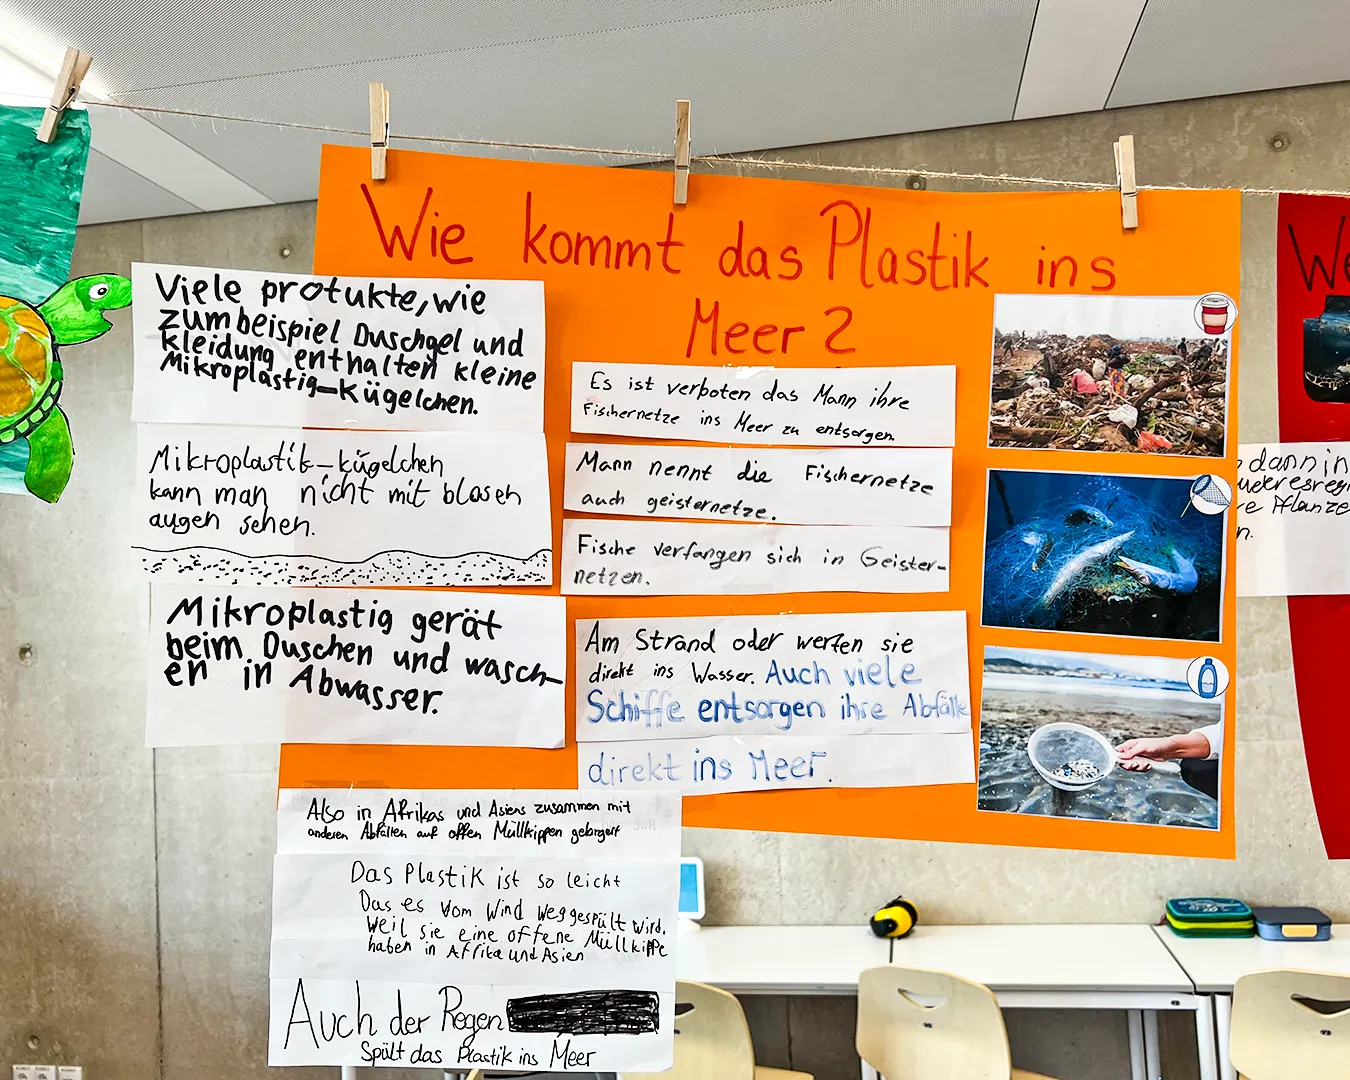 Wie kommt das Plastik ins
Meer?
Viele protukte, wie
zum beispiel Duschgel und
kleidung enthalten kleine
Mikroplastig-Kügelchen.
Mikroplastik-kügelchen
kann man nicht mit blosen
augen sehen.
Mikroplastig gerät
beim Duschen und wasch-
en in Abwasser.
Es ist verboten das Mann ihre
Fischernetze ins Meer zu entsorgen.
Mann nennt die Fischernetze
auch geisternetze.
Fische verfangen sich in Geister-
netzen.
Am Strand oder werfen sie
direkt ins Wasser. Auch viele
Schiffe entsorgen ihre Abfälle
direkt ins Meer.
Also in Afrikas und Asiens zusammen mit
anderen Abfällen auf offen Müllkippen gelargert
Das Plastik ist so leicht
Das es vom Wind weggespült wird.
Weil sie eine offene Müllkippe
haben in Affrika und Asien
Auch der Regen
Spült das Plastik ins Meer
We
dann in
re Pflanze
n.